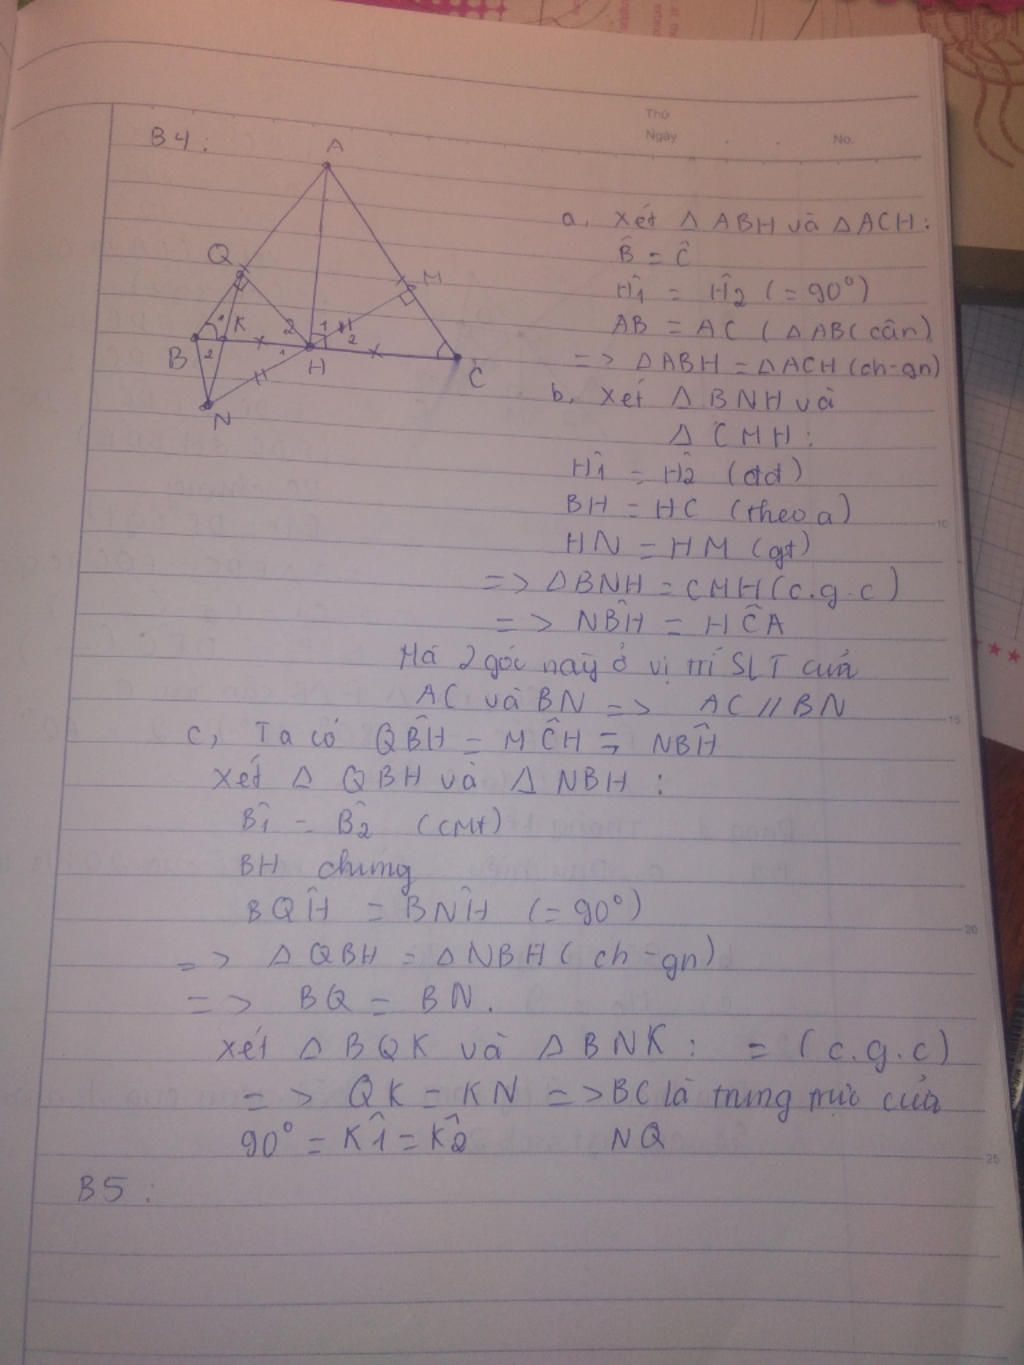 Thứ
Ngày
No.
B4:
A
Q
M
K
1
2
1
1
2
B
2
H
C
N
a, Xét Δ ABH và Δ ACH:
B̂ = Ĉ
Ĥ1 = Ĥ2 (=90°)
AB = AC (Δ ABC cân)
=> Δ ABH = Δ ACH (ch-gn)
b, Xét Δ BNH và
Δ CMH:
Ĥ1 = Ĥ2 (đđ)
BH = HC (theo a)
HN = HM (gt)
=> Δ BNH = CMH (c.g.c)
=> NB̂H = HĈA
Mà 2 góc này ở vị trí SLT của
AC và BN => AC // BN
c, Ta có QB̂H = MĈH = NB̂H
Xét Δ QBH và Δ NBH:
B̂1 = B̂2 (cmt)
BH chung
BQ̂H = BN̂H (=90°)
=> Δ QBH = Δ NBH (ch-gn)
=> BQ = BN.
Xét Δ BQK và Δ BNK: = (c.g.c)
=> QK = KN => BC là trung trực của
90° = K̂1 = K̂2 NQ
B5:
10
15
20
25